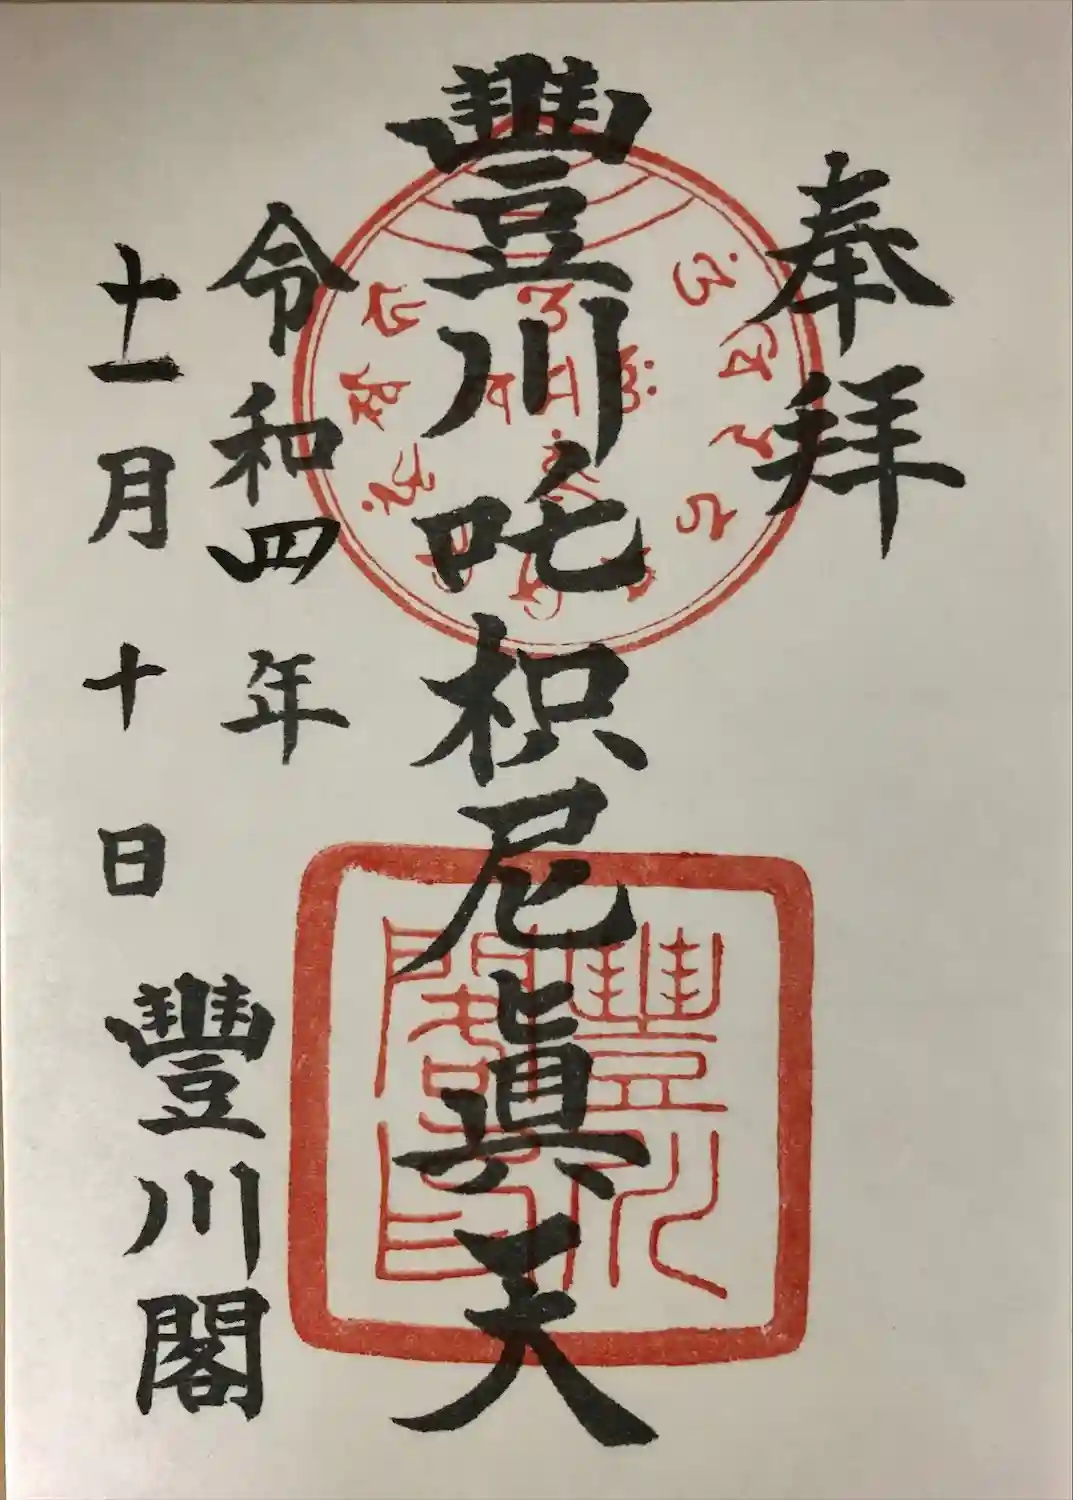 奉拜
豐川吒枳尼眞天
令和四年
十一月十日
豐川閣
豐川閣印